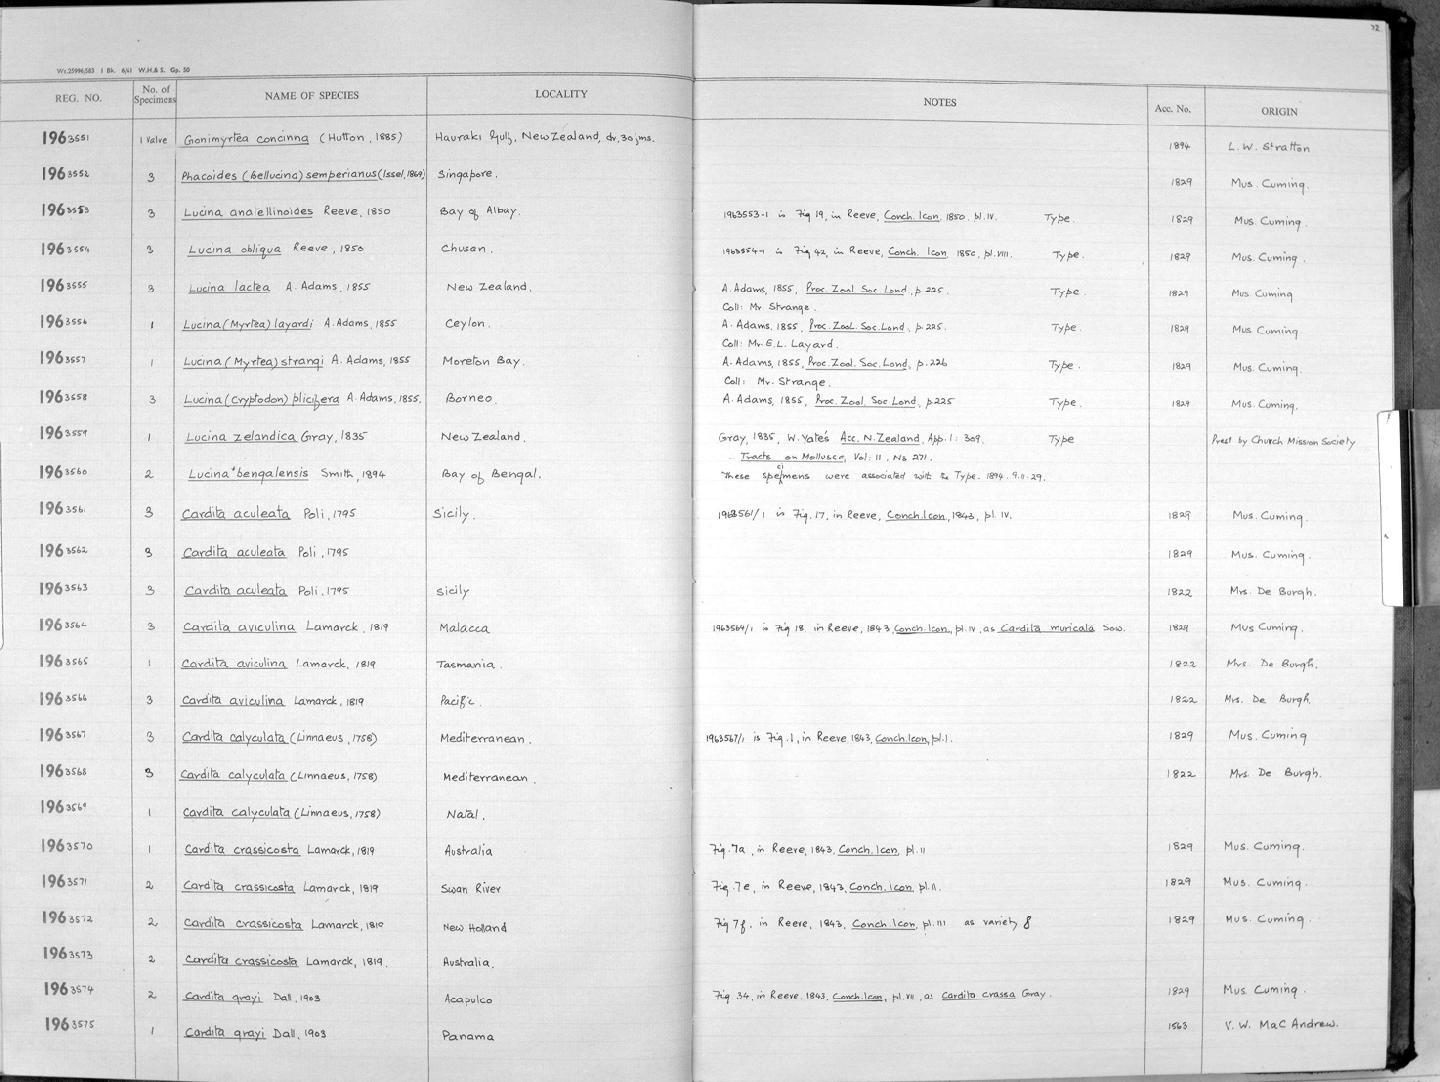 72
Wt.25996,583 1 Bk. 6/61 W.H.& S. Gp. 50
REG. NO. No. of Specimens NAME OF SPECIES LOCALITY NOTES Acc. No. ORIGIN
1963551 1 Valve Gonimyrtea concinna (Hutton, 1885) Hauraki Gulf, New Zealand, dr, 30 fms. 1894 L. W. Stratton
1963552 3 Phacoides (bellucina) semperianus (Issel, 1869) Singapore. 1829 Mus. Cuming.
1963553 3 Lucina Reeve, 1850 Bay of Albay. 1963553-1 is Fig 19, in Reeve, Conch. Icon, 1850. pl. IV. Type. 1829 Mus. Cuming.
1963554 3 Lucina obliqua Reeve, 1850 Chusan. 1963554-1 is Fig 42, in Reeve, Conch. Icon, 1850, pl. VIII. Type. 1829 Mus. Cuming.
1963555 3 Lucina lactea A. Adams, 1855 New Zealand. A. Adams, 1855, Proc. Zool Soc Lond, p 225. Type. 1829 Mus. Cuming
Coll: Mr Strange.
1963556 1 Lucina (Myrtea) layardi A. Adams, 1855 Ceylon. A. Adams, 1855, Proc. Zool. Soc. Lond, p. 225. Type. 1829 Mus Cuming.
Coll: Mr. E. L. Layard.
1963557 1 Lucina (Myrtea) strangi A. Adams, 1855 Moreton Bay. A. Adams, 1855, Proc. Zool. Soc. Lond, p. 226 Type. 1829 Mus. Cuming.
Coll: Mr. Strange.
1963558 3 Lucina (Cryptodon) plicifera A. Adams, 1855. Borneo. A. Adams, 1855, Proc. Zool. Soc Lond, p 225 Type. 1829 Mus. Cuming.
1963559 1 Lucina zelandica Gray, 1835 New Zealand. Gray, 1835, W. Yate's Acc. N. Zealand, App. 1: 309. Type Prest by Church Mission Society
Tracts on Mollusca, Vol: 11, No 271.
1963560 2 Lucina bengalensis Smith, 1894 Bay of Bengal. These specimens were associated with the Type. 1894. 9. 11. 29.
1963561 3 Cardita aculeata Poli, 1795 Sicily. 1963561/1 is Fig. 17, in Reeve, Conch. Icon, 1843, pl. IV. 1829 Mus. Cuming.
1963562 3 Cardita aculeata Poli, 1795 1829 Mus. Cuming.
1963563 3 Cardita aculeata Poli, 1795 Sicily 1822 Mrs. De Burgh.
1963564 3 Cardita aviculina Lamarck, 1819 Malacca 1963564/1 is Fig 18 in Reeve, 1843, Conch. Icon, pl. IV, as Cardita muricata Sow. 1829 Mus Cuming.
1963565 1 Cardita aviculina Lamarck, 1819 Tasmania. 1822 Mrs. De Burgh.
1963566 3 Cardita aviculina Lamarck, 1819 Pacific. 1822 Mrs. De Burgh.
1963567 3 Cardita calyculata (Linnaeus, 1758) Mediterranean. 1963567/1 is Fig. 1, in Reeve 1843, Conch. Icon, pl. 1. 1829 Mus. Cuming
1963568 3 Cardita calyculata (Linnaeus, 1758) Mediterranean. 1822 Mrs. De Burgh.
1963569 1 Cardita calyculata (Linnaeus, 1758) Natal.
1963570 1 Cardita crassicosta Lamarck, 1819 Australia Fig. 7a, in Reeve, 1843, Conch. Icon, pl. II 1829 Mus. Cuming.
1963571 2 Cardita crassicosta Lamarck, 1819 Swan River Fig. 7e, in Reeve, 1843, Conch. Icon, pl. II. 1829 Mus. Cuming.
1963572 2 Cardita crassicosta Lamarck, 1819 New Holland Fig 7f. in Reeve, 1843, Conch Icon, pl. III as variety f 1829 Mus. Cuming.
1963573 2 Cardita crassicosta Lamarck, 1819. Australia.
1963574 2 Cardita grayi Dall, 1903 Acapulco Fig. 34, in Reeve. 1843. Conch. Icon, pl. VII, as Cardita crassa Gray. 1829 Mus. Cuming.
1963575 1 Cardita grayi Dall, 1903 Panama 1563 V. W. MacAndrew.